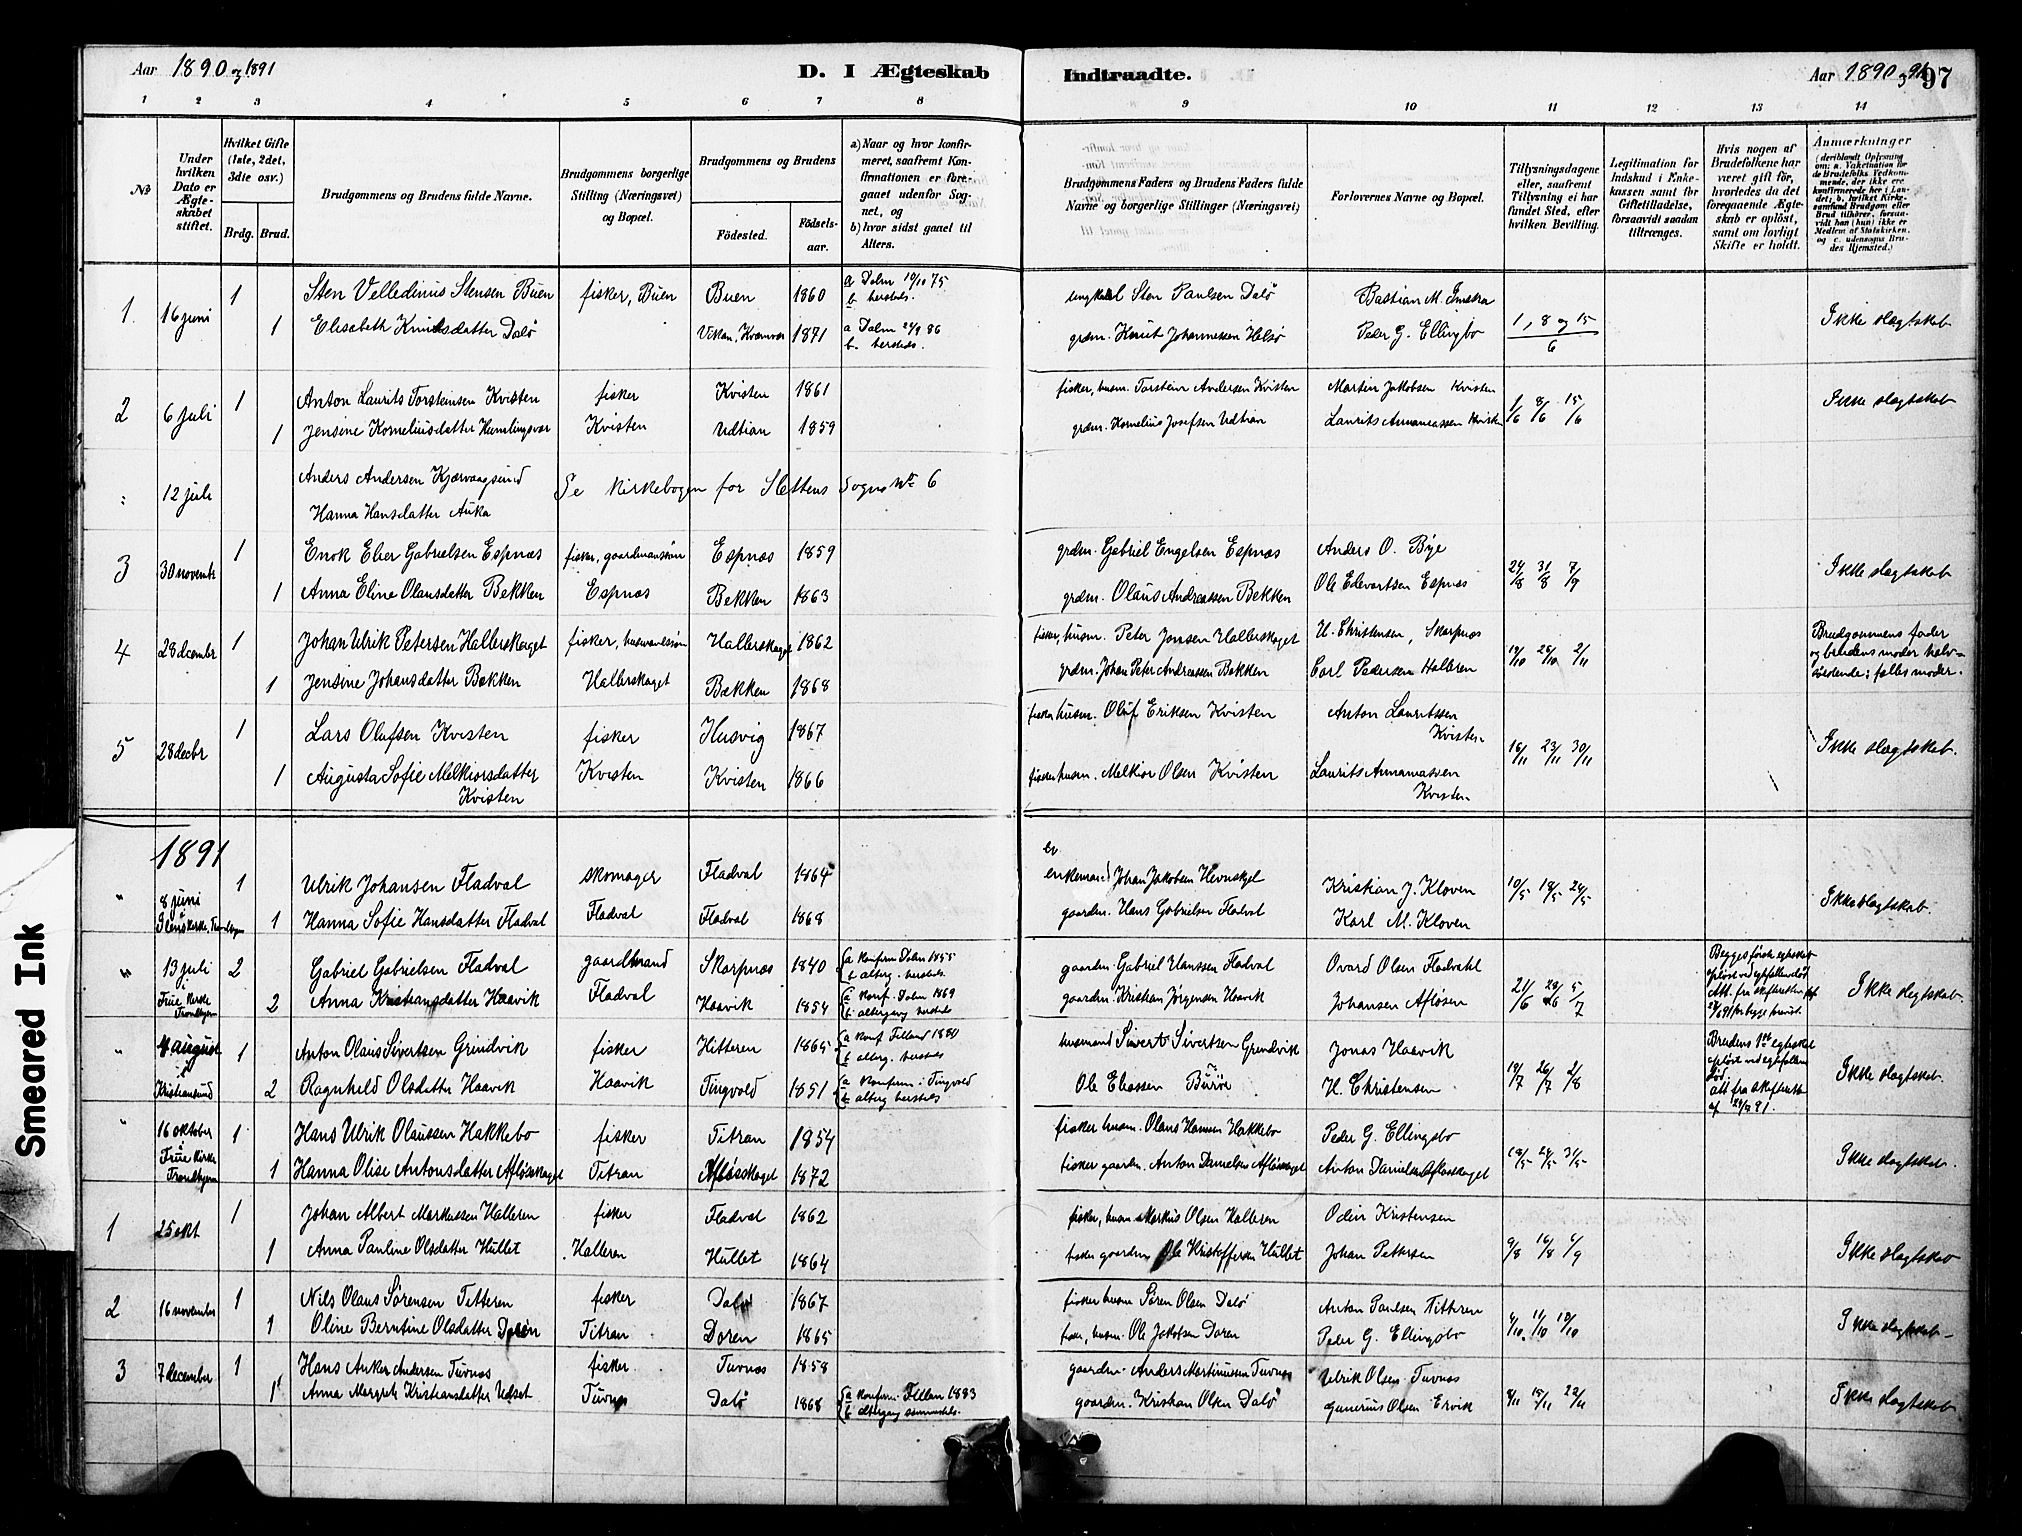 Aar 1890 og 1891
D. I Ægteskab Indtraadte.
Aar 1890 og 91 97
1 2 3 4 5 6 7 8 9 10 11 12 13 14
No
Under hvilken Dato er Ægteskabet stiftet.
Hvilket Gifte (1ste, 2det, 3dte osv.)
Brdg. Brud.
Brudgommens og Brudens fulde Navne.
Brudgommens borgerlige Stilling (Næringsvei) og Bopæl.
Brudgommens og Brudens
Fødested. Fødselsaar.
a) Naar og hvor konfirmeret, saafremt Konfirmationen er foregaaet udenfor Sognet, og
b) hvor sidst gaaet til Alters.
Brudgommens Faders og Brudens Faders fulde Navne og borgerlige Stillinger (Næringsvei)
Forlovernes Navne og Bopæl.
Tillysningsdagene eller, saafremt Tillysning ei har fundet Sted, efter hvilken Bevilling.
Legitimation for Indskud i Enkekassen samt for Giftetilladelse, forsaavidt saadan tiltrænges.
Hvis nogen af Brudefolkene har været gift før, hvorledes da det foregaaende Ægteskab er opløst, samt om lovligt Skifte er holdt.
Anmærkninger
1. 16 juni 1 Sten Velledinus Stensen Buen fisker, Buen Buen 1860 a Dolm 10/10 75 b hersteds. Sten Paulsen Dalø Bastian M.
1 Elisabeth Knutsdatter Dalø 1871 a Dolm 86 b. hersteds. grdm. Knut Johannessen Helsø Peder G. Ellingbø 1, 8 og 15/6 Ikke slægtskab
2 6 juli 1 Anton Laurits Torsteinsen Kvisten fisker Kvisten 1861 fisker, husm. Torstein Andersen Kvisten Martin Jakobsen Kvisten 1/6 8/6 15/6 Ikke slægtskab
1 Jensine Korneliusdatter Humlingsvær Kvisten Udtian 1859 grdm. Kornelius Josefsen Udtian Laurits Annanaassen Kvisten
12 juli Anders Andersen Kjærvaagsund Se kirkebogen for Slettens Sogn No 6
Hanna Hansdatter Auka
3 30 novembr 1 Enok Elier Gabrielsen Espnæs fisker, gaardmanssøn Espnæs 1859 grdm. Gabriel Engelsen Espnæs Anders O. Bye 24/8 31/8 7/9 Ikke slægtskab
1 Anna Eline Olausdatter Bekken Espnæs Bekken 1863 grdm. Olaus Andreassen Bekken Ole Edevartsen Espnæs
4 28 decembr 1 Johan Ulrik Petersen Hallerskaget fisker, husmandssøn Hallerskaget 1862 fisker, husm. Peter Jensen Hallerskaget H. Christensen, Skarpnæs 19/10 26/10 2/11 Brudgommens fader og brudens moder halvsødskende; fælles moder.
1 Jensine Johansdatter Bækken Hallerskaget Bækken 1868 grdm. Johan Peter Andreassen Bekken Carl Pedersen Halleren
5 28 decbr 1 Lars Olufsen Kvisten fisker Husvig 1867 fisker husm. Oluf Eriksen Kvisten Anton Lauritssen Kvisten 16/11 23/11 30/11 Ikke slægtskab.
1 Augusta Sofie Melkiorsdatter Kvisten Kvisten Kvisten 1866 fisker husm. Melkior Olsen Kvisten Laurits Annanassen Kvisten
1891
" 8 juni Ilens kirke, 1 Ulrik Johansen Fladval skomager Fladval 1864 enkemand Johan Jakobsen Hevnskjel Kristian J. Kloven 10/5 18/5 24/5 Ikke slægtskab.
1 Hanna Sofie Hansdatter Fladval Fladval Fladval 1868 gaardm. Hans Gabrielsen Fladval Karl M. Kloven
" 13 juli 2 Gabriel Gabrielsen Fladval gaardmand Skarpnæs 1840 a konfirm Dolm 1855 b alterg. hersteds. gaardm. Gabriel Hanssen Fladval Ovard Olsen Fladvahl 21/6 28/6 5/7 Ikke slægtskab.
Frue kirke Trondhjem 2 Anna Kristiansdatter Haavik Fladval Haavik 1854 a konf. Dolm 1869 b altergang hersteds gaardm. Kristian Jørgensen Haavik Johansen Afløsen
" 4 august 1 Anton Olaus Sivertsen Grindvik fisker Hitteren 1865 a konf Fillan 1880 b alterg. hersteds husmand Sivert Sivertsen Grindvik Jonas Haavik 19/7 26/7 2/8 Ikke slægtskab.
Kristiansund 2 Ragnhild Olsdatter Haavik Haavik Tingvold 1851 a konfirm i Tingvold b alterg hersteds Ole Eliassen Burøe H. Christensen
" 16 oktober 1 Hans Ulrik Olaussen Hakkebo fisker Titran 1854 fisker husm. Olaus Hansen Hakkebo Peder G. Ellingsbo 24/5 31/5 Ikke slægtskab.
Frue kirke Trondhjem 1 Hanna Olise Antonsdatter Afløsskaget Titran Afløsskaget 1872 fisker gaardm. Anton Danielsen Afløsskaget Anton Danielsen Afløsskaget
1 25 okt 1 Johan Albert Markussen Halleren fisker Fladval 1862 fisker, husm Markus Olsen Halleren Odin Kristensen 9/8 16/8 6/9 Ikke slægtskab
1 Anna Pauline Olsdatter Hullet Halleren Hullet 1864 fisker gaardm Ole Kristoffersen Hullet Johan Pettersen
2 16 november 1 Nils Olaus Sørensen Titteren fisker Dalø 1867 fisker husm Søren Olsen Dalø Anton Paulsen Titteren 4/10 11/10 18/10 Ikke slægtskab
1 Oline Berntine Olsdatter Doren Titran Doren 1865 fisker, husm. Ole Jakobsen Doren Peder G. Ellingsbo
3 7 december 1 Hans Anker Andersen Tuvnæs fisker Tuvnæs 1858 gaardm. Anders Martinussen Tuvnæs Ulrik Olsen Tuvnæs 8/11 15/11 22/11 Ikke slægtskab
1 Anna Margrete Kristiansdatter Udset Tuvnæs Dalø 1868 a konfirm. Fillan 1883 b altergang sammesteds. gaardm. Kristian Olsen Dalø Gunerius Olsen Ervik
Smeared Ink